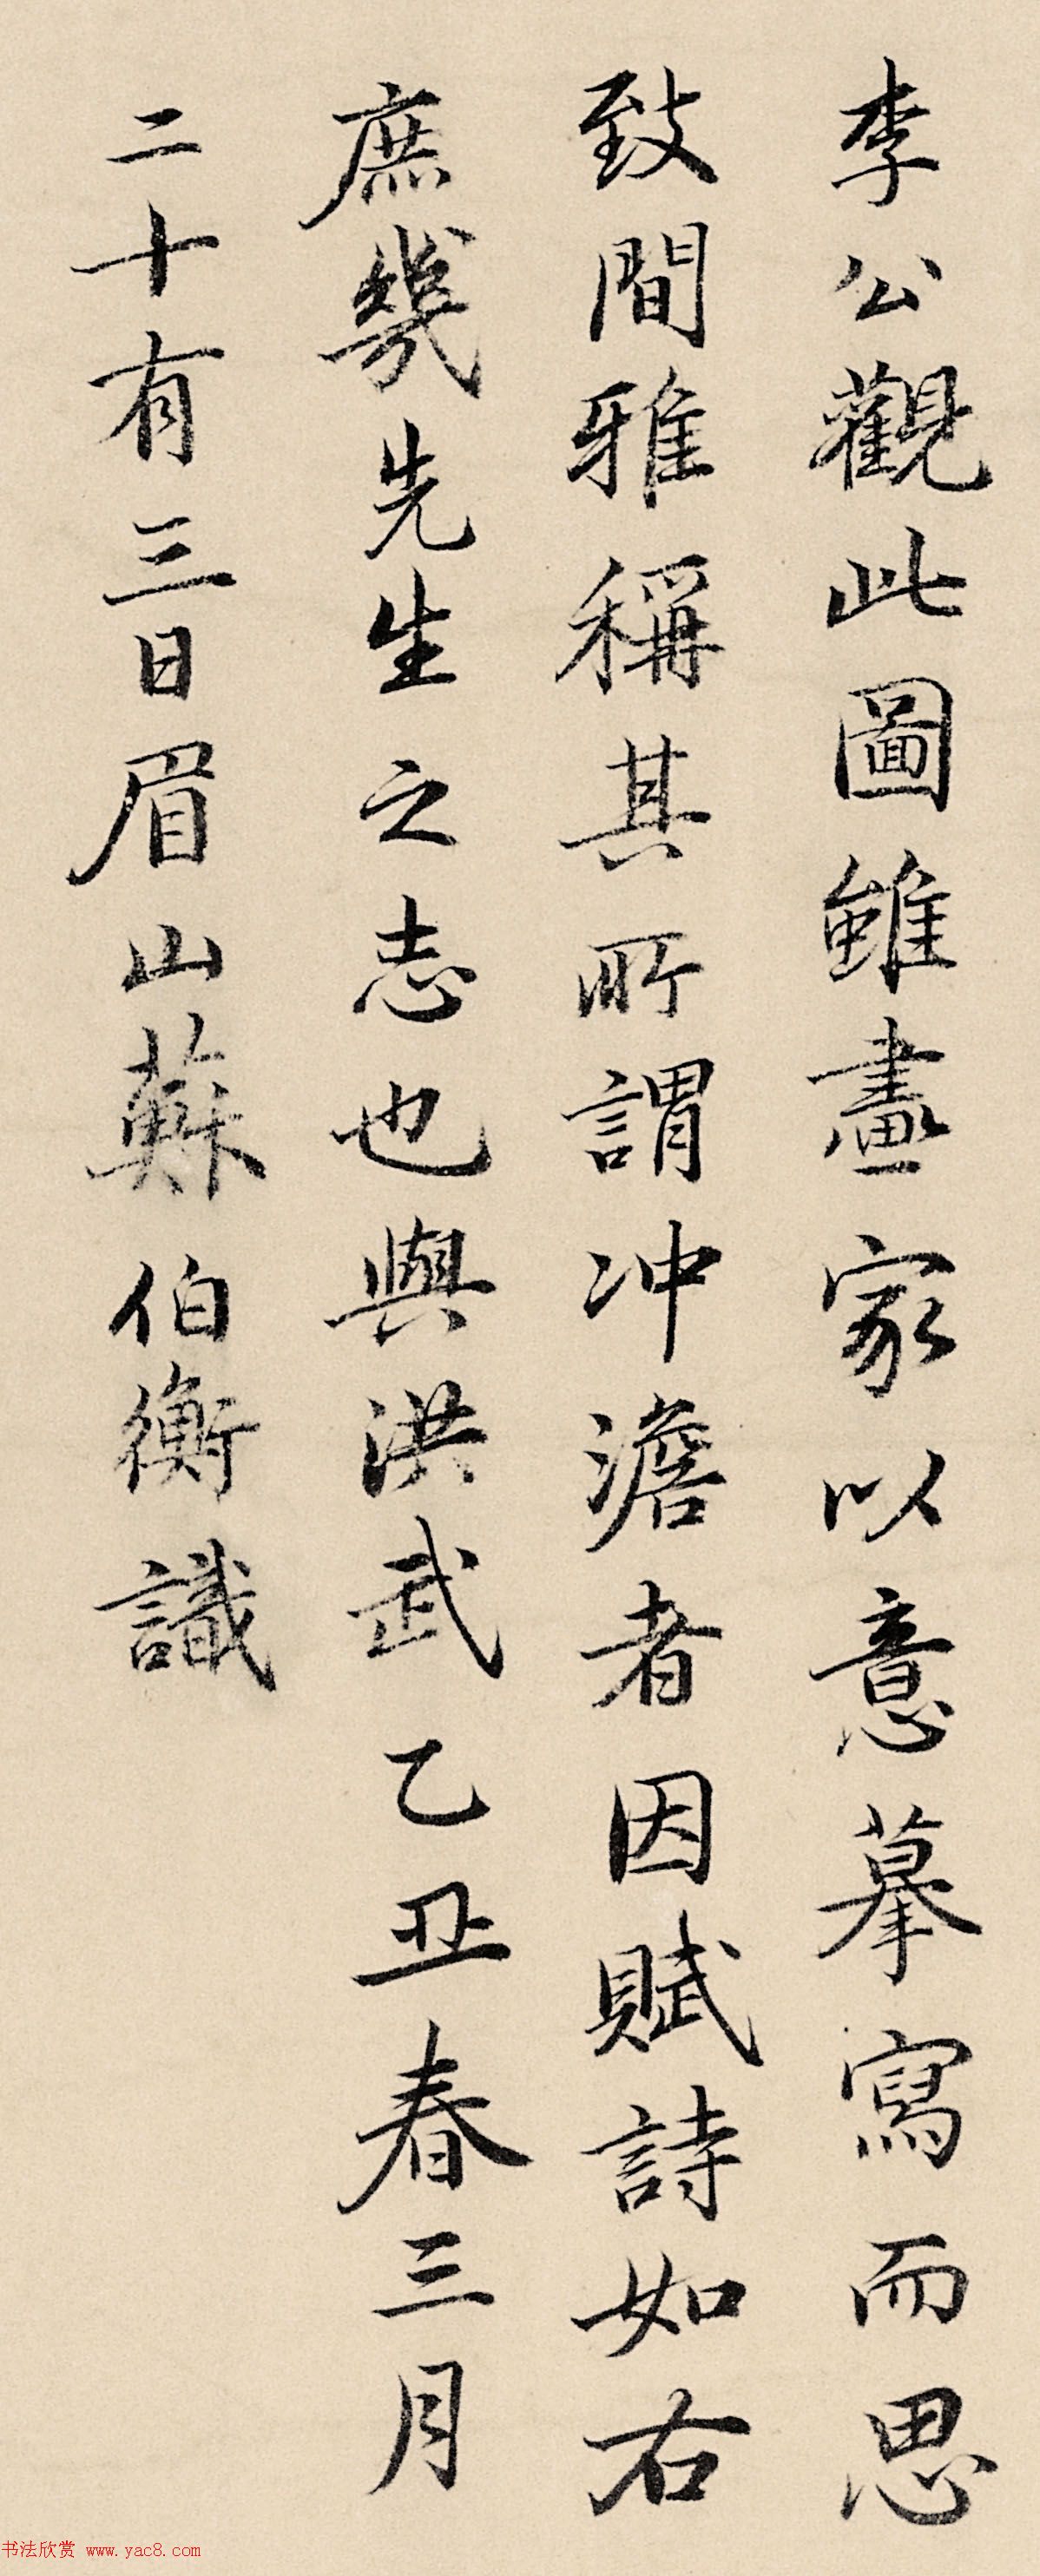 李公觀此圖雖畫家以意摹寫而思
致間雅稱其所謂冲澹者因賦詩如右
庶幾先生之志也與洪武乙丑春三月
二十有三日眉山蘇伯衡識
书法欣赏 www.yac8.com